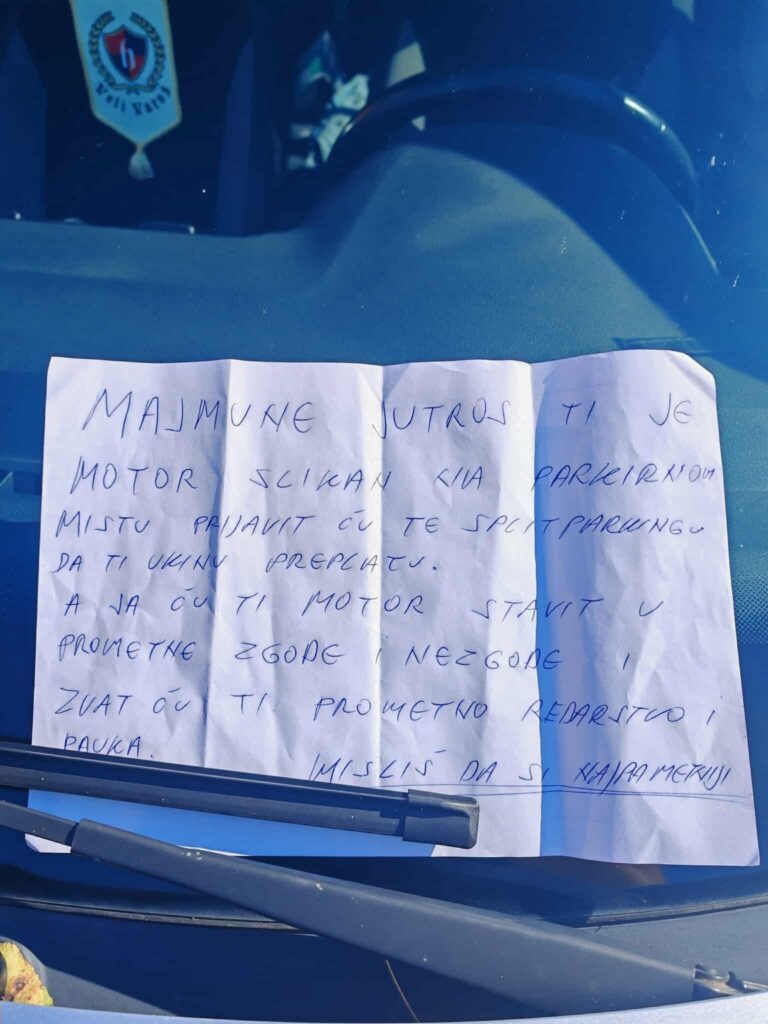 Veli Varoš
MAJMUNE JUTROS TI JE
MOTOR SLIKAN NA PARKIRNOM
MISTU PRIJAVIT ĆU TE SPLITPARKINGU
DA TI UKINU PREPLATU.
A JA ĆU TI MOTOR STAVIT U
PROMETNE ZGODE I NEZGODE I
ZVAT ĆU TI PROMETNO REDARSTVO I
PAUKA.
MISLIŠ DA SI NAJPAMETNIJI